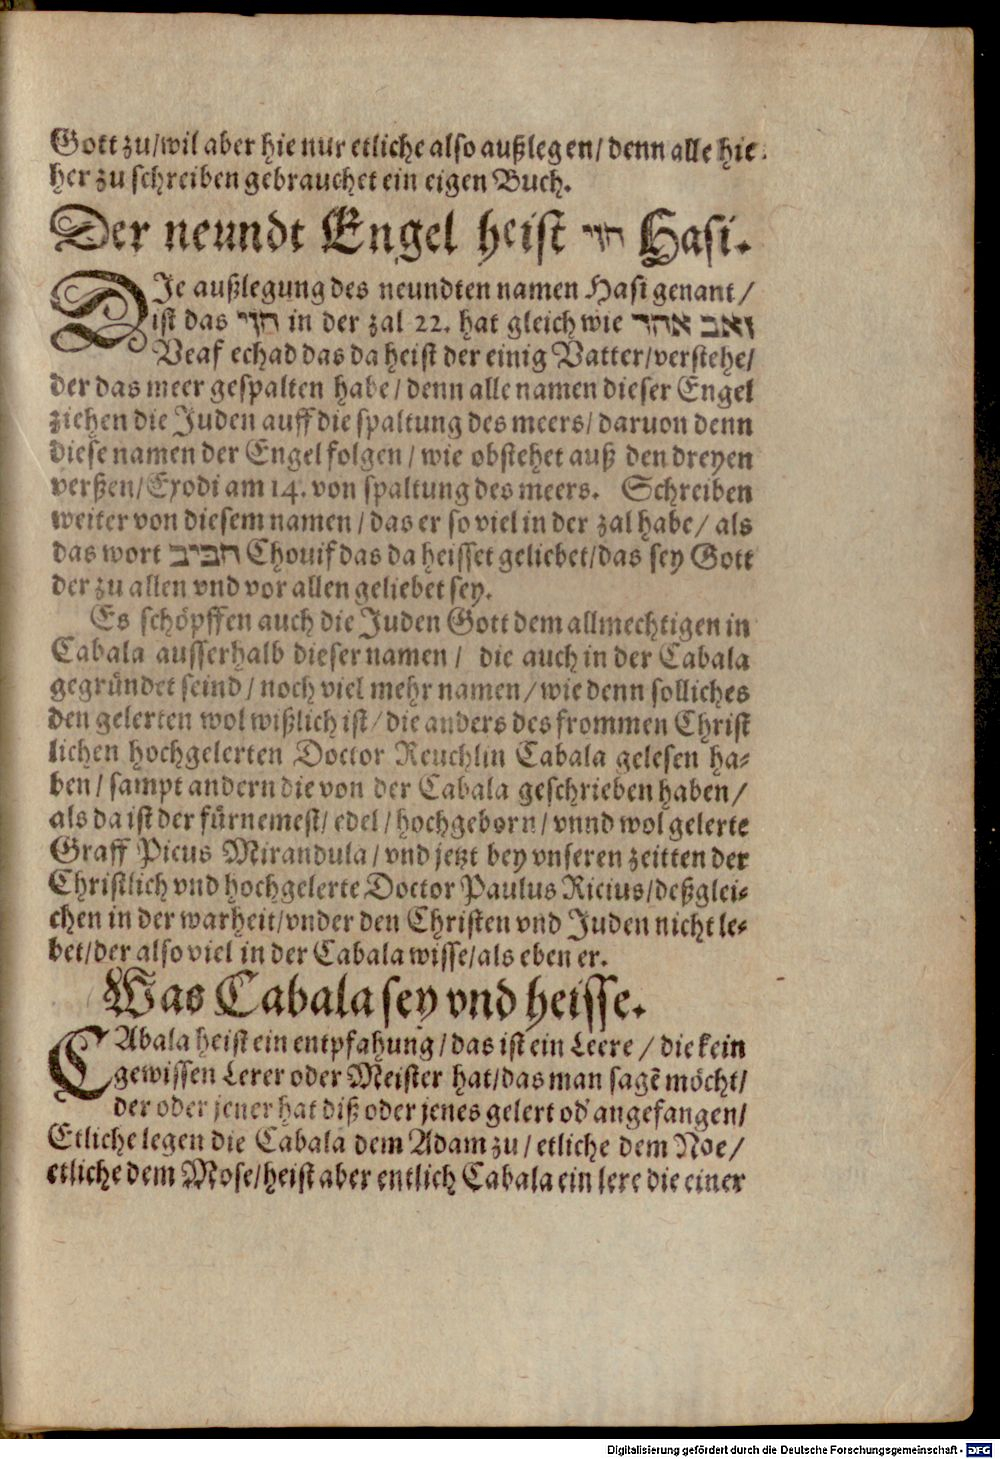 Gott zu/wil aber hie nur etliche also außlegen/ denn alle hie
her zu schreiben gebrauchet ein eigen Buch.
Der neundt Engel heist חזי Hasi.
DIe außlegung des neundten namen Hasi genant/
ist das חזי in der zal 22. hat gleich wie ואב אחד
Veaf echad das da heist der einig Vatter/verstehe/
der das meer gespalten habe/ denn alle namen dieser Engel
ziehen die Juden auff die spaltung des meers/ daruon denn
diese namen der Engel folgen/ wie obstehet auß den dreyen
verßen/Exodi am 14. von spaltung des meers. Schreiben
weiter von diesem namen/ das er so viel in der zal habe/ als
das wort חביב Chouif das da heisset geliebet/das sey Gott
der zu allen vnd vor allen geliebet sey.
Es schöpffen auch die Juden Gott dem allmechtigen in
Cabala ausserhalb dieser namen/ die auch in der Cabala
gegründet seind/ noch viel mehr namen/ wie denn solliches
den gelerten wol wißlich ist/ die anders des frommen Christ
lichen hochgelerten Doctor Reuchlin Cabala gelesen ha-
ben/ sampt andern die von der Cabala geschrieben haben/
als da ist der fürnemest/ edel/ hochgeborn/ vnnd wol gelerte
Graff Picus Mirandula/ vnd jetzt bey vnseren zeitten der
Christlich vnd hochgelerte Doctor Paulus Ricius/deßglei-
chen in der warheit/vnder den Christen vnd Juden nicht le-
bet/der also viel in der Cabala wisse/als eben er.
Was Cabala sey vnd heisse.
CAbala heist ein entpfahung/das ist ein Leere/ die kein
gewissen Lerer oder Meister hat/das man sagē möcht/
der oder jener hat diß oder jenes gelert od' angefangen/
Etliche legen die Cabala dem Adam zu/ etliche dem Noe/
etliche dem Mose/heist aber entlich Cabala ein lere die einer
Digitalisierung gefördert durch die Deutsche Forschungsgemeinschaft - DFG